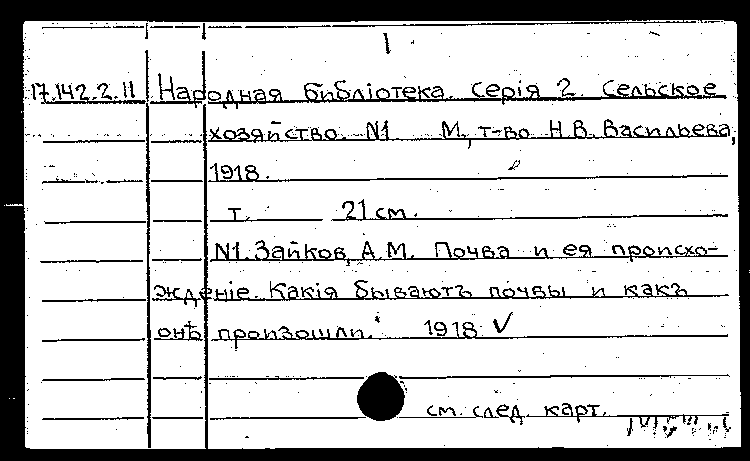 1
17.142.2.11 Народная библіотека. Серія 2. Сельское
хозяйство. N1 М., т-во Н.В. Васильева,
1918.
т. 21 см.
N1. Зайков, А.М. Почва и ея происхо-
жденіе. Какія бываютъ почвы и какъ
онѣ произошли. 1918 V
см. след. карт.